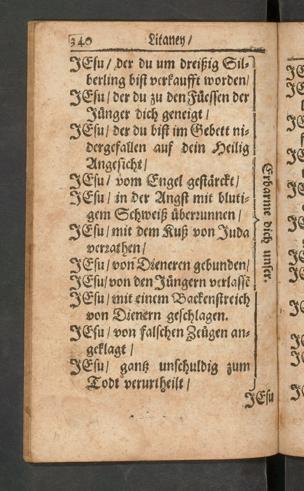 340 Litaney /
JEsu / der du um dreißig Sil-
berling bist verkaufft worden /
JEsu / der du zu den Füessen der
Jünger dich geneigt /
JEsu / der du bist im Gebett ni-
dergefallen auf dein Heilig
Angesicht /
JEsu / vom Engel gestärckt /
JEsu / in der Angst mit bluti-
gem Schweiß überrunnen /
JEsu / mit dem Kuß von Juda
verrathen /
JEsu / von Dieneren gebunden /
JEsu / von den Jüngern verlassē
JEsu / mit einem Backenstreich
von Dienern geschlagen.
JEsu / von falschen Zeügen an-
geklagt /
JEsu / gantz unschuldig zum
Todt verurtheilt /
Erbarme dich unser.
JEsu